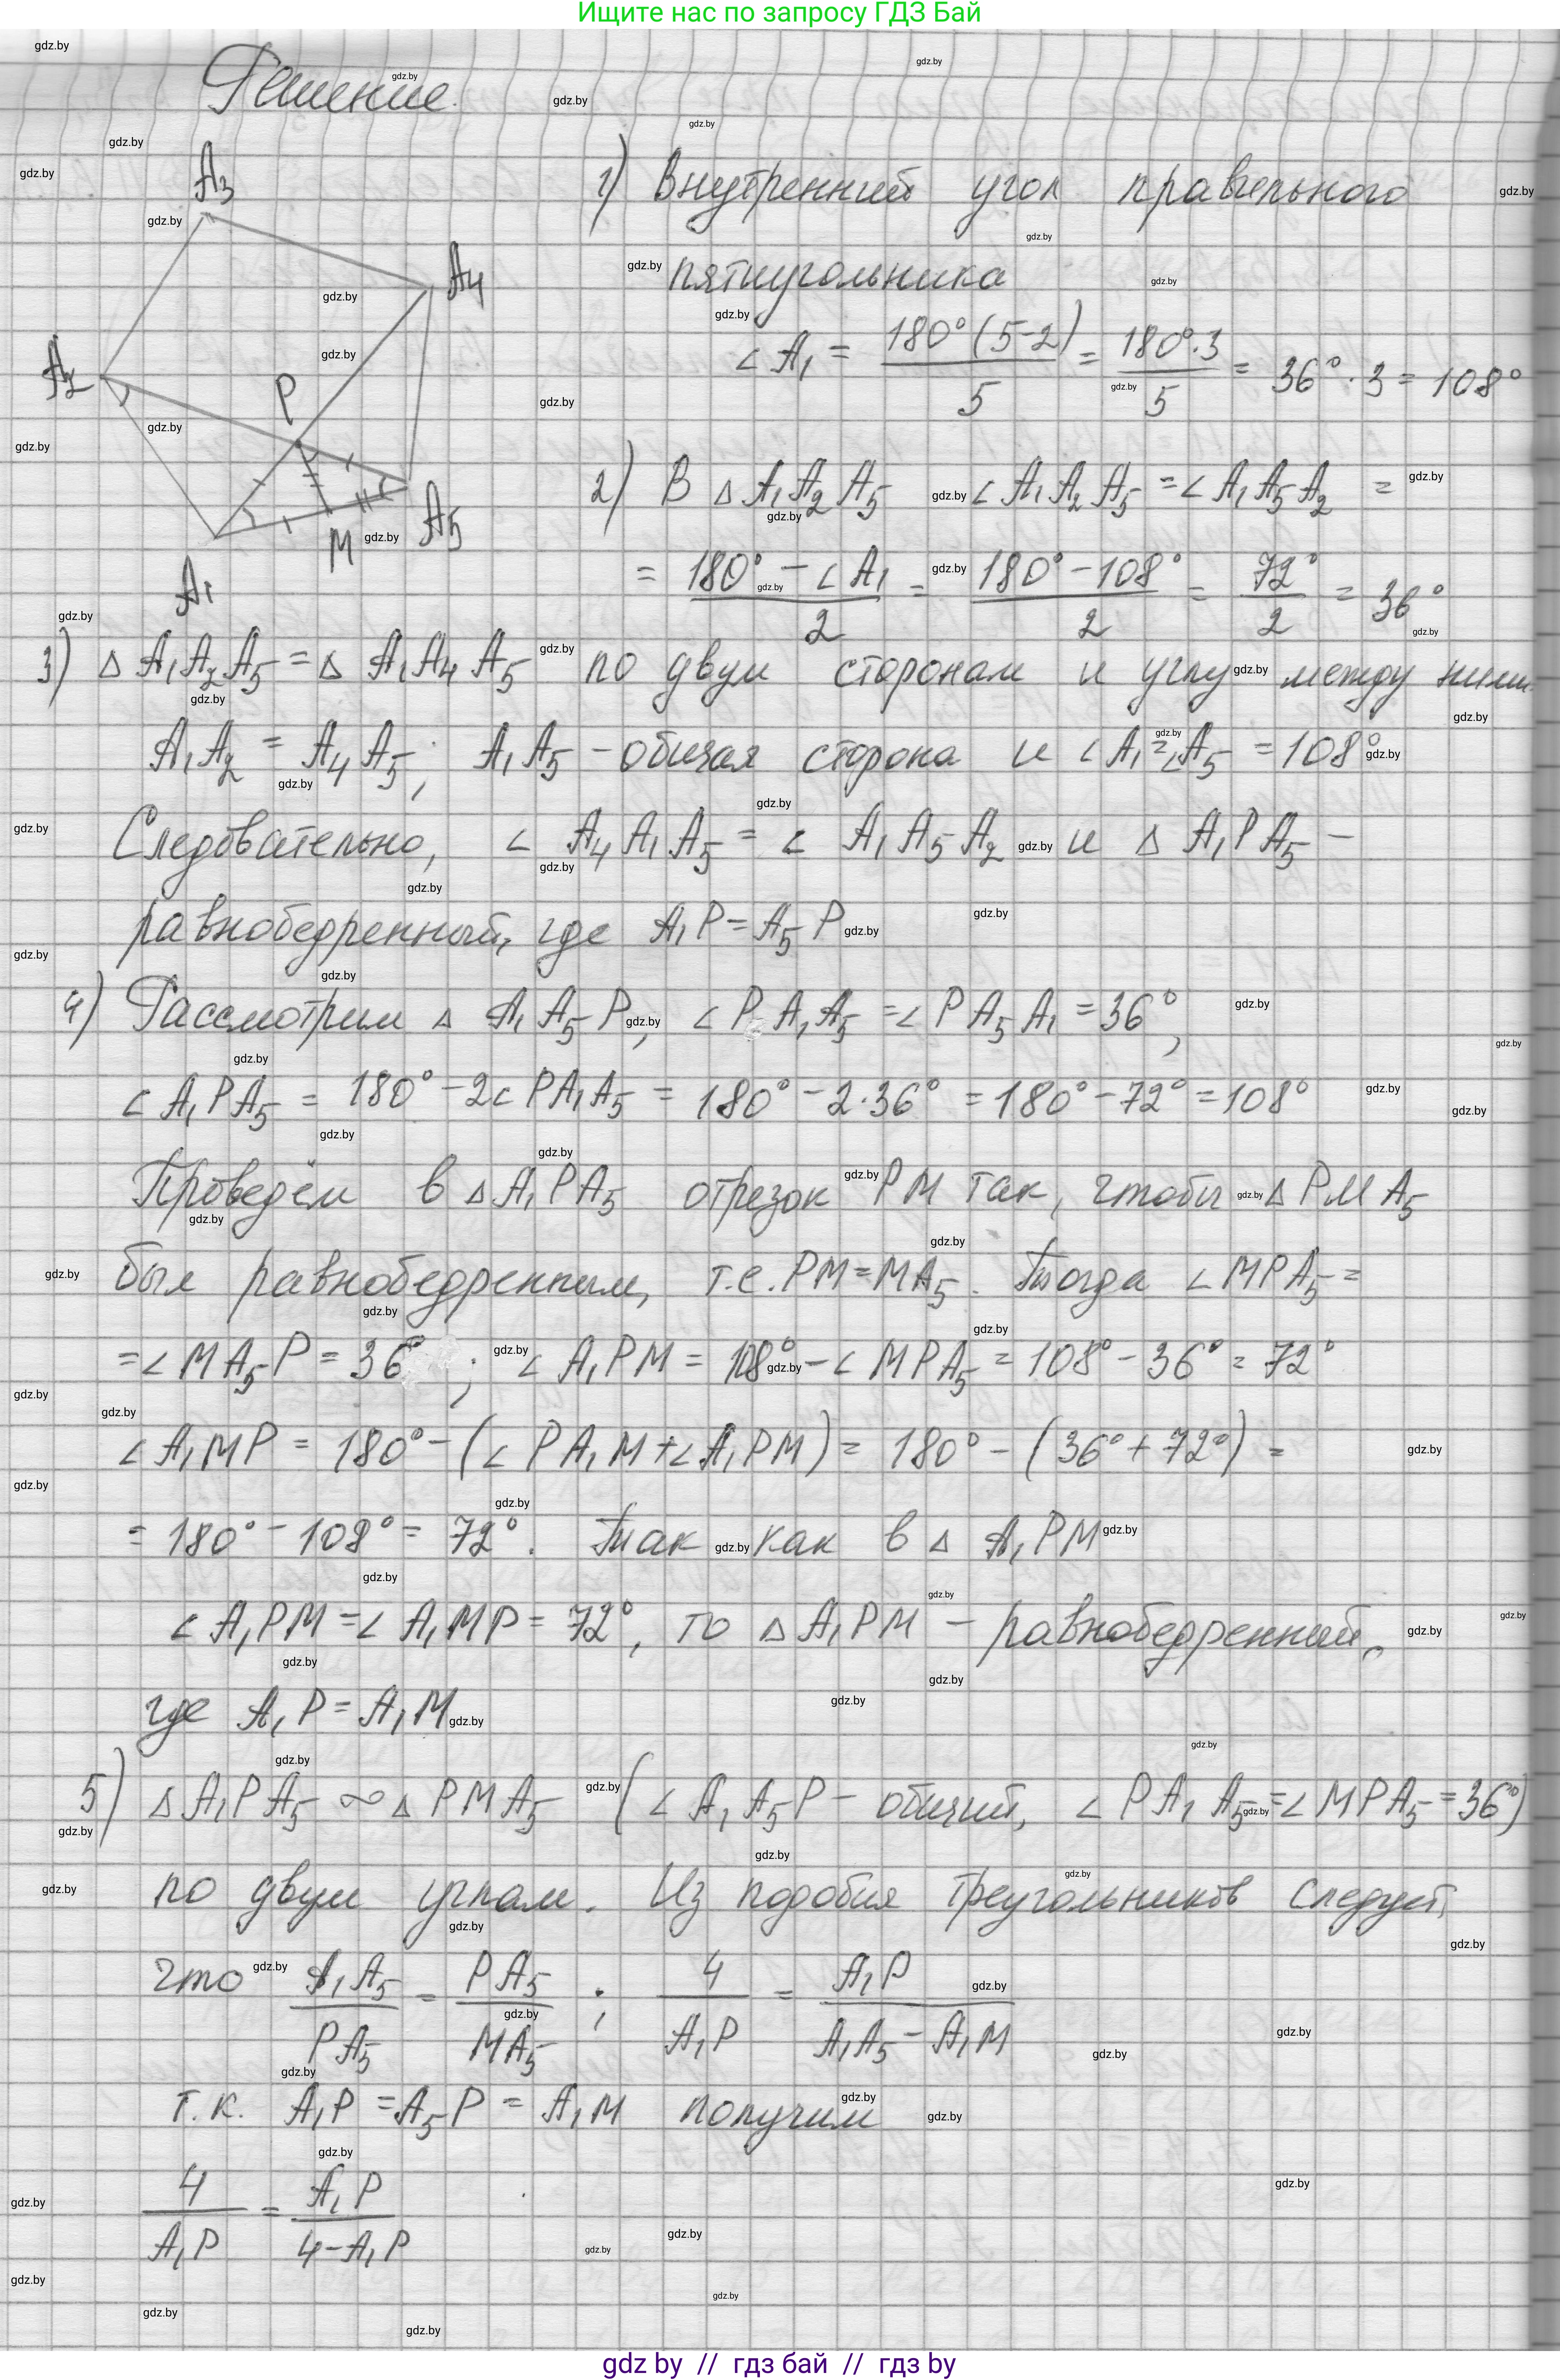 Ищите нас по запросу ГДЗ Бай
Решение.
A3
A4
A2
P
M
A5
A1
1) Внутренний угол правильного
пятиугольника
∠A₁ = 180°(5-2)/5 = 180°·3/5 = 36°·3 = 108°
2) В △A₁A₂A₅ ∠A₁A₂A₅ = ∠A₁A₅A₂ =
= (180° - ∠A₁)/2 = (180° - 108°)/2 = 72°/2 = 36°
3) △A₁A₂A₅ = △A₁A₄A₅ по двум сторонам и углу между ними.
A₁A₂ = A₄A₅; A₁A₅ - общая сторона и ∠A₁ = ∠A₅ = 108°
Следовательно, ∠A₄A₁A₅ = ∠A₁A₅A₂ и △A₁PA₅ -
равнобедренный, где A₁P = A₅P
4) Рассмотрим △A₁A₅P, ∠PA₁A₅ = ∠PA₅A₁ = 36°,
∠A₁PA₅ = 180° - 2∠PA₁A₅ = 180° - 2·36° = 180° - 72° = 108°
Проведём в △A₁PA₅ отрезок PM так, чтобы △PMA₅
был равнобедренным, т.е. PM = MA₅. Тогда ∠MPA₅ =
= ∠MA₅P = 36°; ∠A₁PM = 108° - ∠MPA₅ = 108° - 36° = 72°
∠A₁MP = 180° - (∠PA₁M + ∠A₁PM) = 180° - (36° + 72°) =
= 180° - 108° = 72°. Так как в △A₁PM
∠A₁PM = ∠A₁MP = 72°, то △A₁PM - равнобедренный,
где A₁P = A₁M
5) △A₁PA₅ ∞ △PMA₅ (∠A₁A₅P - общий, ∠PA₁A₅ = ∠MPA₅ = 36°)
по двум углам. Из подобия треугольников следует,
что A₁A₅/PA₅ = PA₅/MA₅; 4/A₁P = A₁P/(A₁A₅ - A₁M)
т.к. A₁P = A₅P = A₁M получим
4/A₁P = A₁P/(4 - A₁P)
gdz by // гдз бай // гдз by